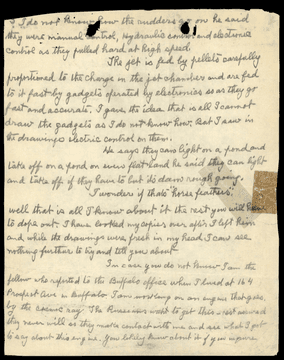 I do not know how the rudders go on he said
they were manual control, Hydraulic control and electronic
control as they pulled hard at high speed.
The jet is fed by pellets carefully
proportioned to the change in the jet chambers and are fed
to it fast by gadgets operated by electronics so as they go
fast and accurate, I gave the idea that is all I cannot
draw the gadgets as I do not know how. But I saw in
the drawings electric control on them.
He says they can light on a pond and
take off on a pond or even flat land he said they can light
and take off if they have to but its damn rough going.
I wonder if thats horse feathers.
well that is all I know about it the rest you will have
to dope out. I have looked my copies over after I left him
and while the drawings were fresh in my head I can see
nothing further to try and tell you about
In case you do not know I am the
fellow who reported to the Buffalo office when I lived at 164
Prospect Ave in Buffalo I am working on an engine that goes
by the cosmic ray. The Russians want to get this & rest assured
they never will as they make contact with me and see what I got
to say about this engine. You likely know about it if you inquire